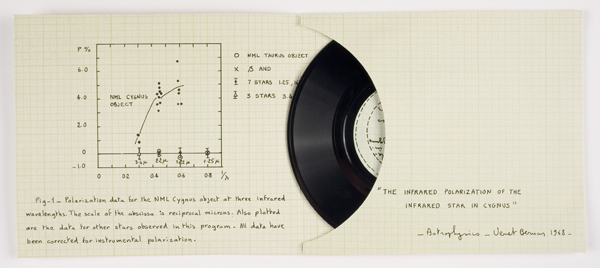 P %
6.0
4.0
2.0
0
-1.0
NML CYGNUS
OBJECT
3.4µ 2.2µ 1.65µ 1.25µ
0 0.2 0.4 0.6 0.8 1/λ
O NML TAURUS OBJECT
X β AND
7 STARS 1.25,
3 STARS
Fig-1_ Polarization data for the NML Cygnus object at three infrared
wavelengths. The scale of the abscissa is reciprocal microns. Also plotted
are the data for other stars observed in this program - All data have
been corrected for instrumental polarization.
"THE INFRARED POLARIZATION OF THE
INFRARED STAR IN CYGNUS"
_ Astrophysics _ Venet 1968 _